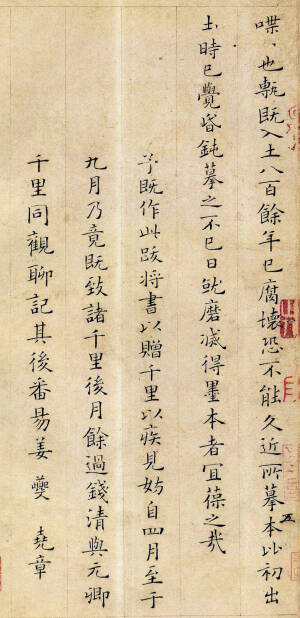 喋〻也甎既入土八百餘年已腐壞恐不能久近所摹本比初出
土時已覺昏鈍摹之不已日就磨滅得墨本者宜葆之哉
予既作此跋將書以贈千里以疾見妨自四月至于
九月乃竟既致諸千里後月餘過錢清與元卿
千里同觀聊記其後番昜姜夔堯章
五